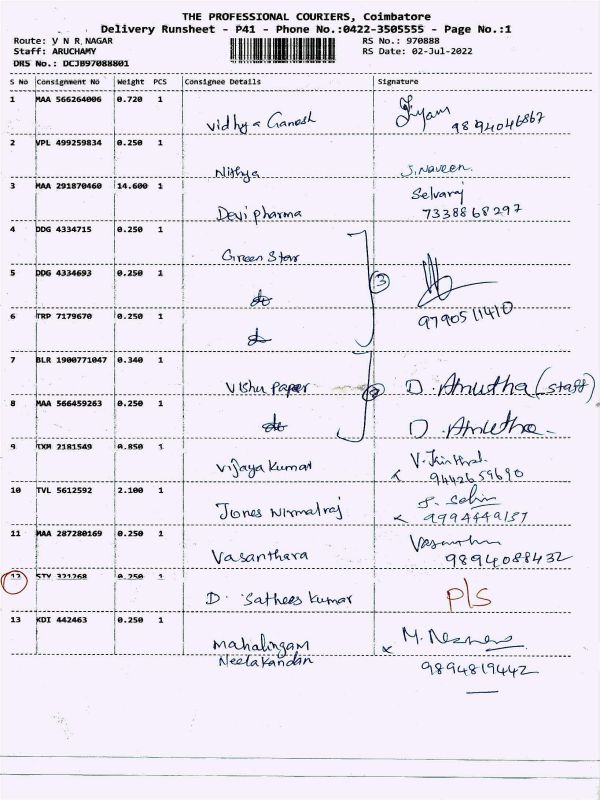 THE PROFESSIONAL COURIERS, Coimbatore
Delivery Runsheet - P41 - Phone No.:0422-3505555 - Page No.:1
Route: V N R NAGAR RS No.: 970888
Staff: ARUCHAMY RS Date: 02-Jul-2022
DRS No.: DCJB97088801
S No Consignment No Weight PCS Consignee Details Signature
1 MAA 566264006 0.720 1
Vidhya Ganesh 9894046867
2 VPL 499259834 0.250 1
Nithya J. Naveen
3 MAA 291870460 14.600 1 Selvaraj
Devi pharma 7338868297
4 DDG 4334715 0.250 1
Green Star
5 DDG 4334693 0.250 1 3
do
6 TRP 7179670 0.250 1 9790511410
do
7 BLR 1900771047 0.340 1
Vishu Paper D. Anutha (staff)
8 MAA 566459263 0.250 1
do D. Anutha
9 TXM 2181549 0.850 1
Vijaya Kumar 9442659690
10 TVL 5612592 2.100 1
Jones Nirmalraj 9994449157
11 MAA 287280169 0.250 1
Vasanthara 9894088432
12 STV 321268 0.250 1
D. Sathees Kumar P/S
13 KDI 442463 0.250 1
Mahalingam
Neelakandan 9894819442